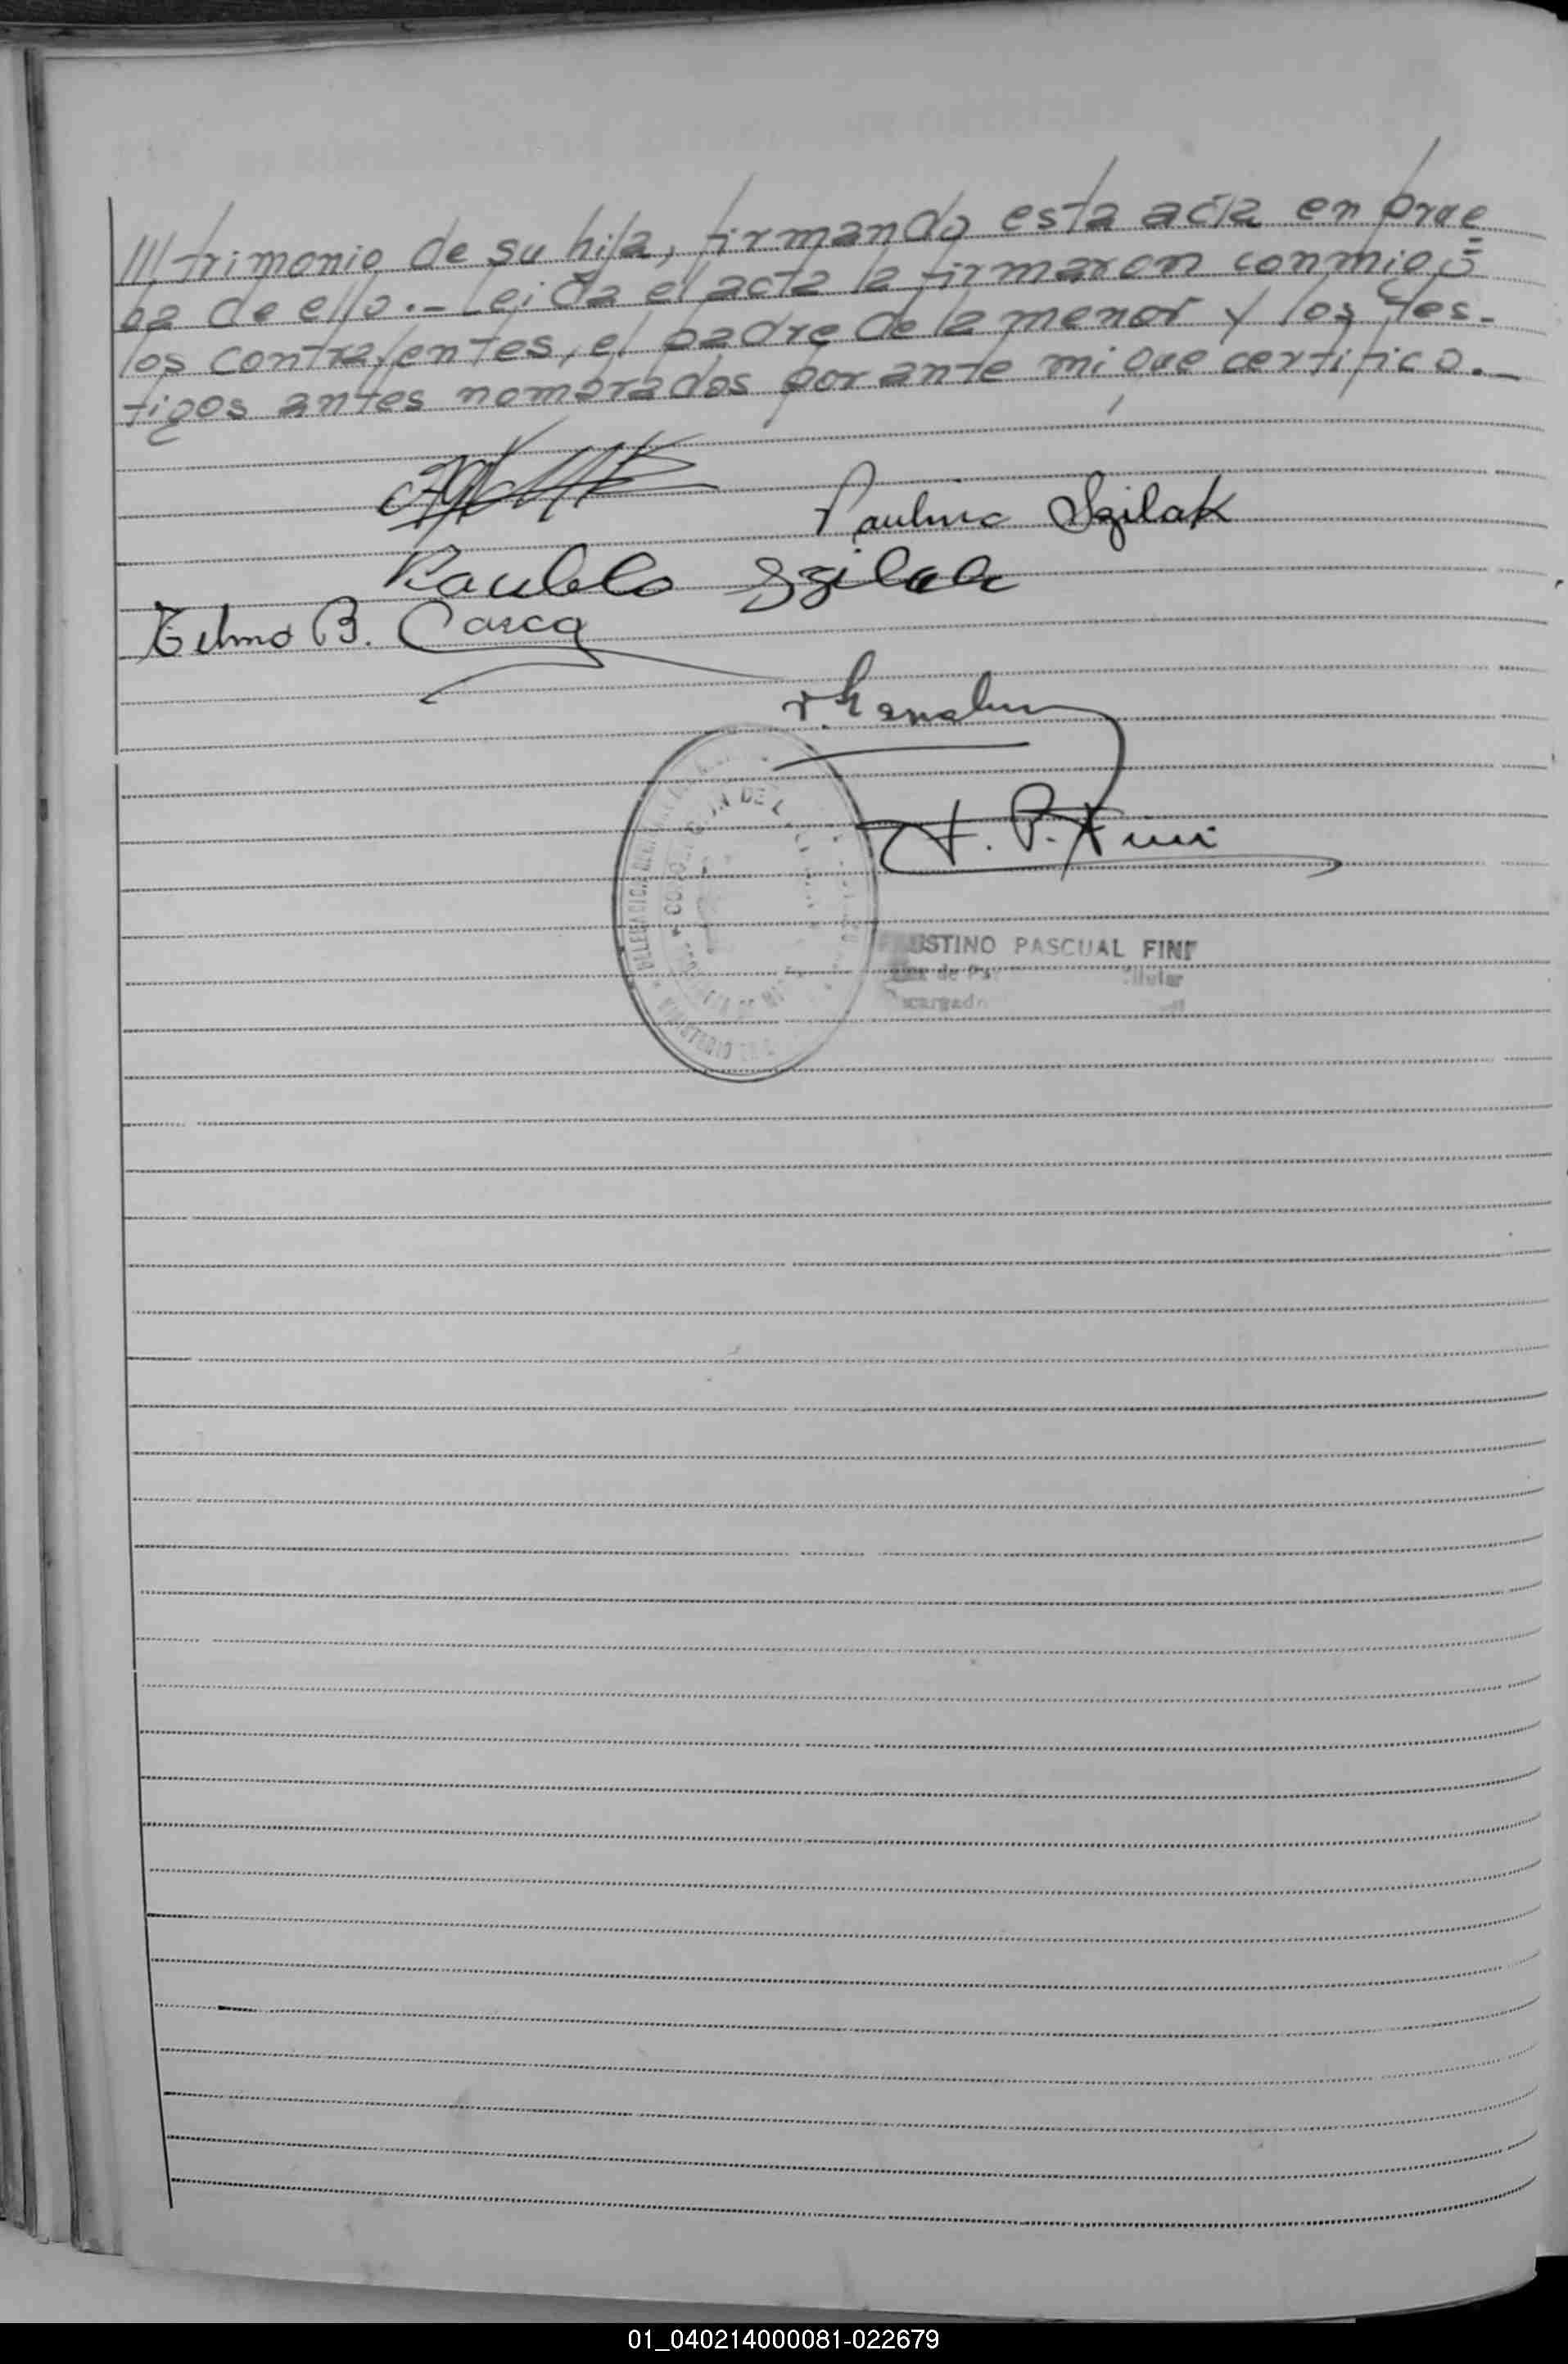 ///trimonio de su hija, firmando esta acta en prue=
ba de ello.- Leida el acta la firmaron conmigo
los contrayentes, el padre de la menor y los tes-
tigos antes nombrados por ante mi que certifico.-
Paulina Szilak
Paulo Szilak
Telmo B.
F. P. Fini
DELEGACION
DE
MINISTERIO
FAUSTINO PASCUAL FINI
Titular
Encargado
01_040214000081-022679